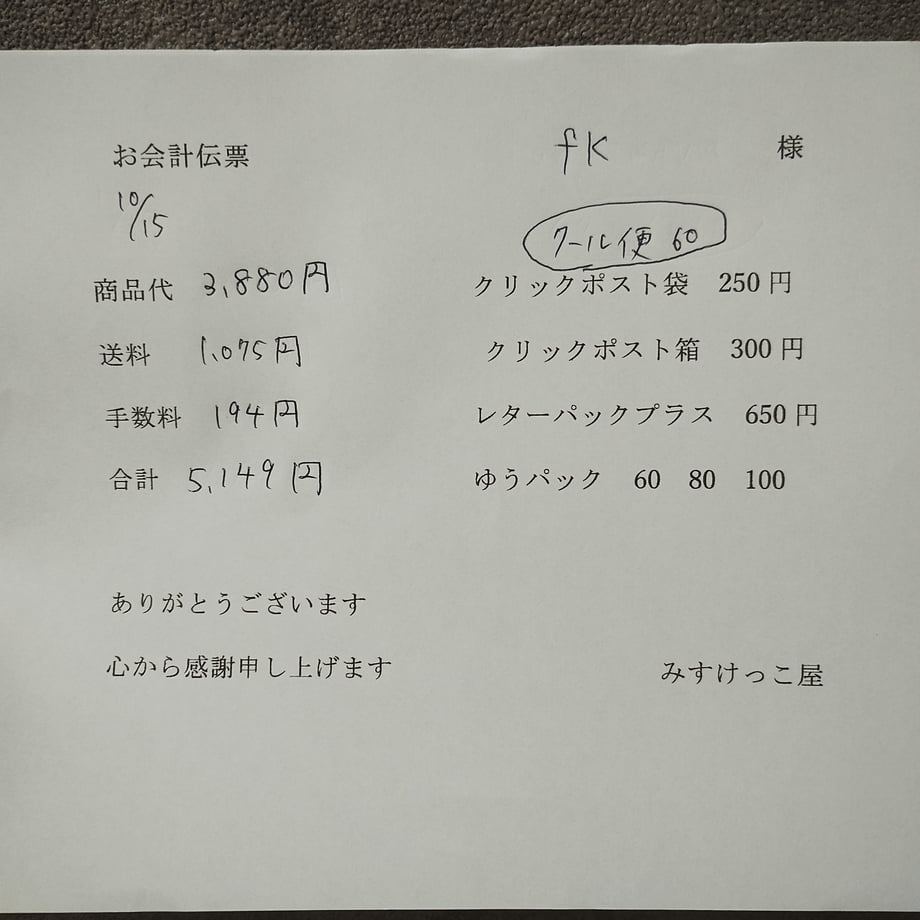 お会計伝票
fK 様
10/15
クール便 60
商品代 3,880円
クリックポスト袋 250円
送料 1,075円
クリックポスト箱 300円
手数料 194円
レターパックプラス 650円
合計 5,149円
ゆうパック 60 80 100
ありがとうございます
心から感謝申し上げます
みすけっこ屋